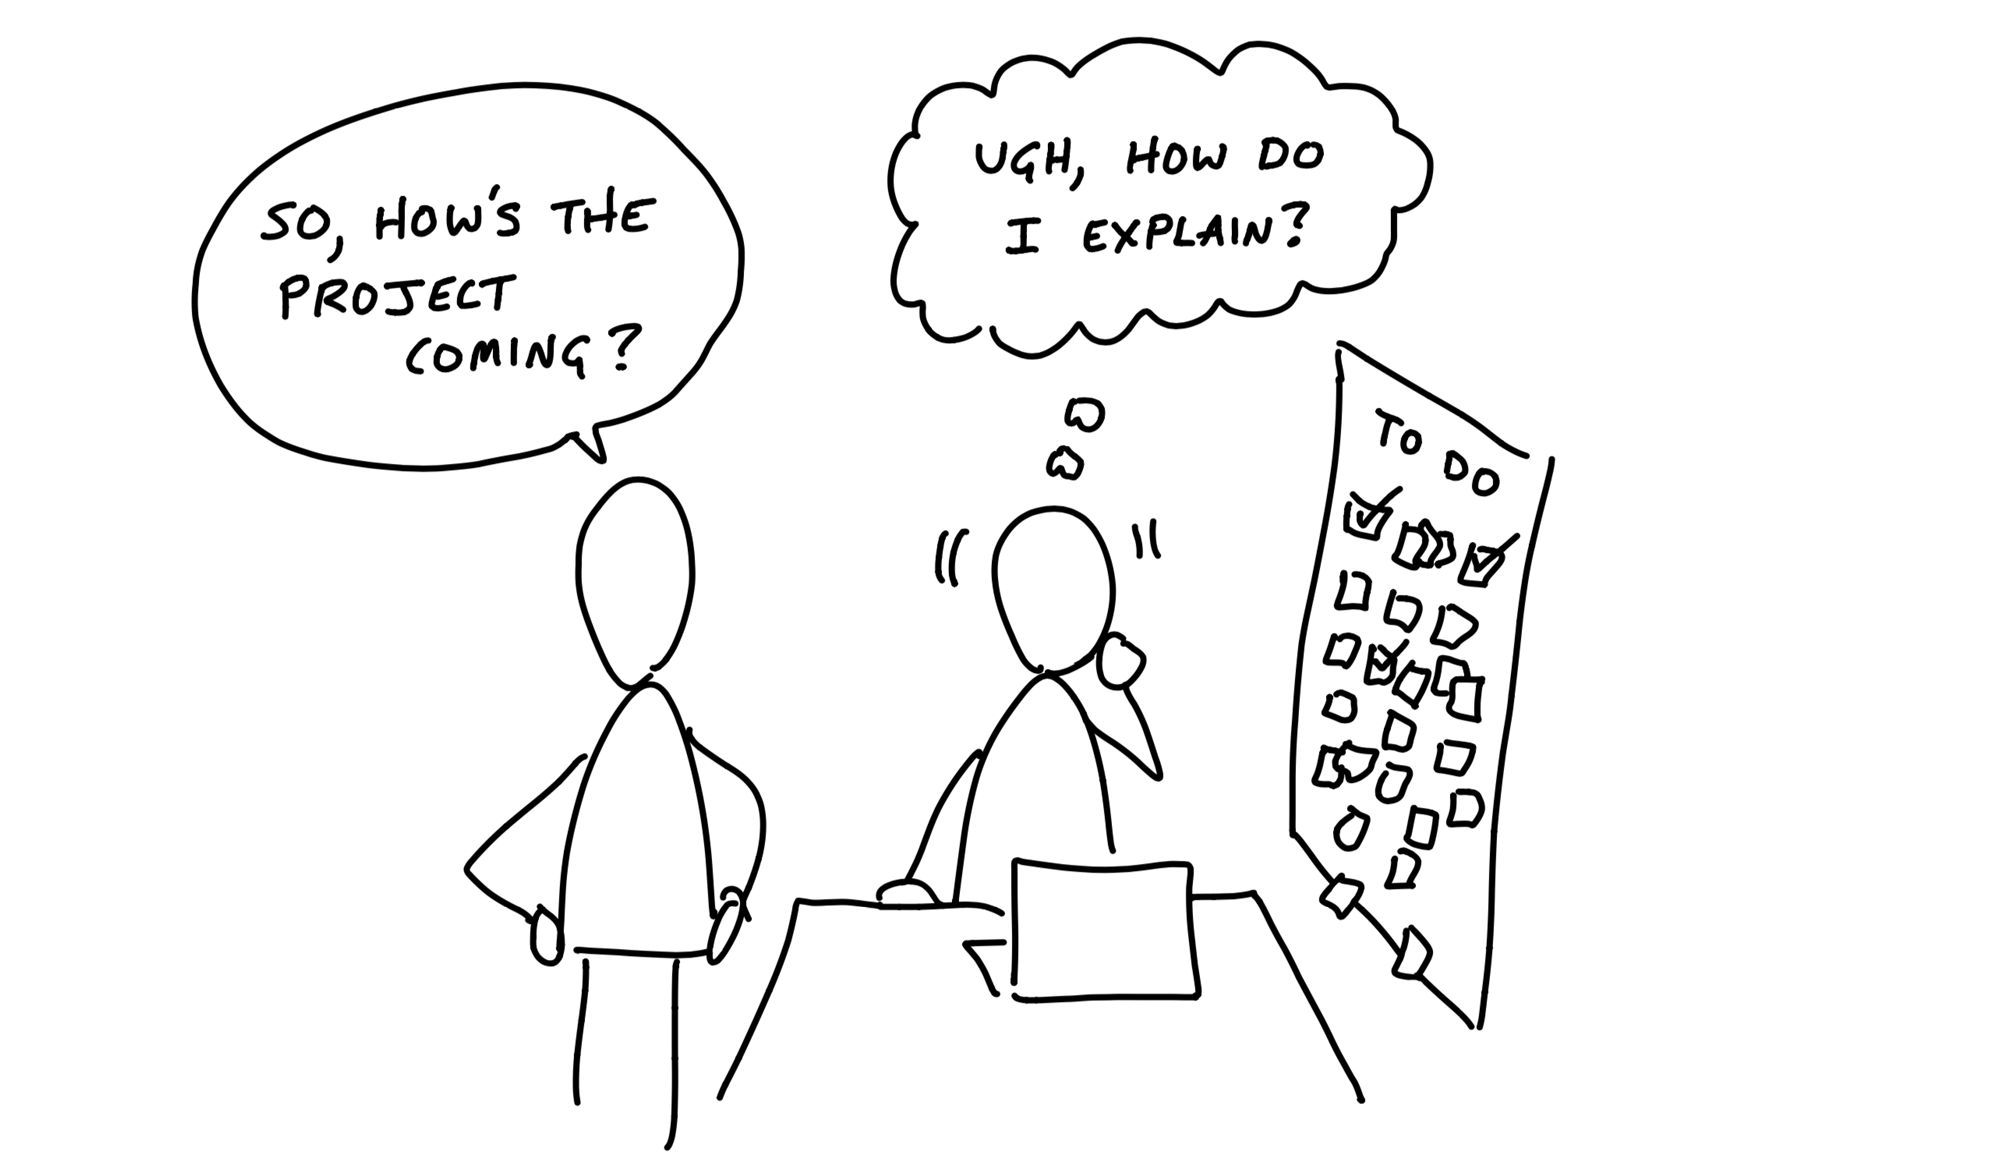 SO, HOW'S THE
PROJECT
COMING?
UGH, HOW DO
I EXPLAIN?
TO DO